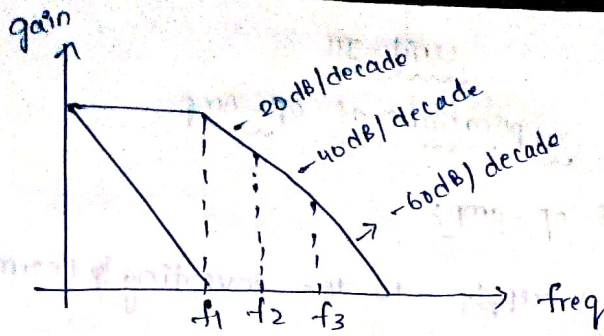 gain
-20dB/decade
-40dB/decade
-60dB/decade
f1 f2 f3
freq